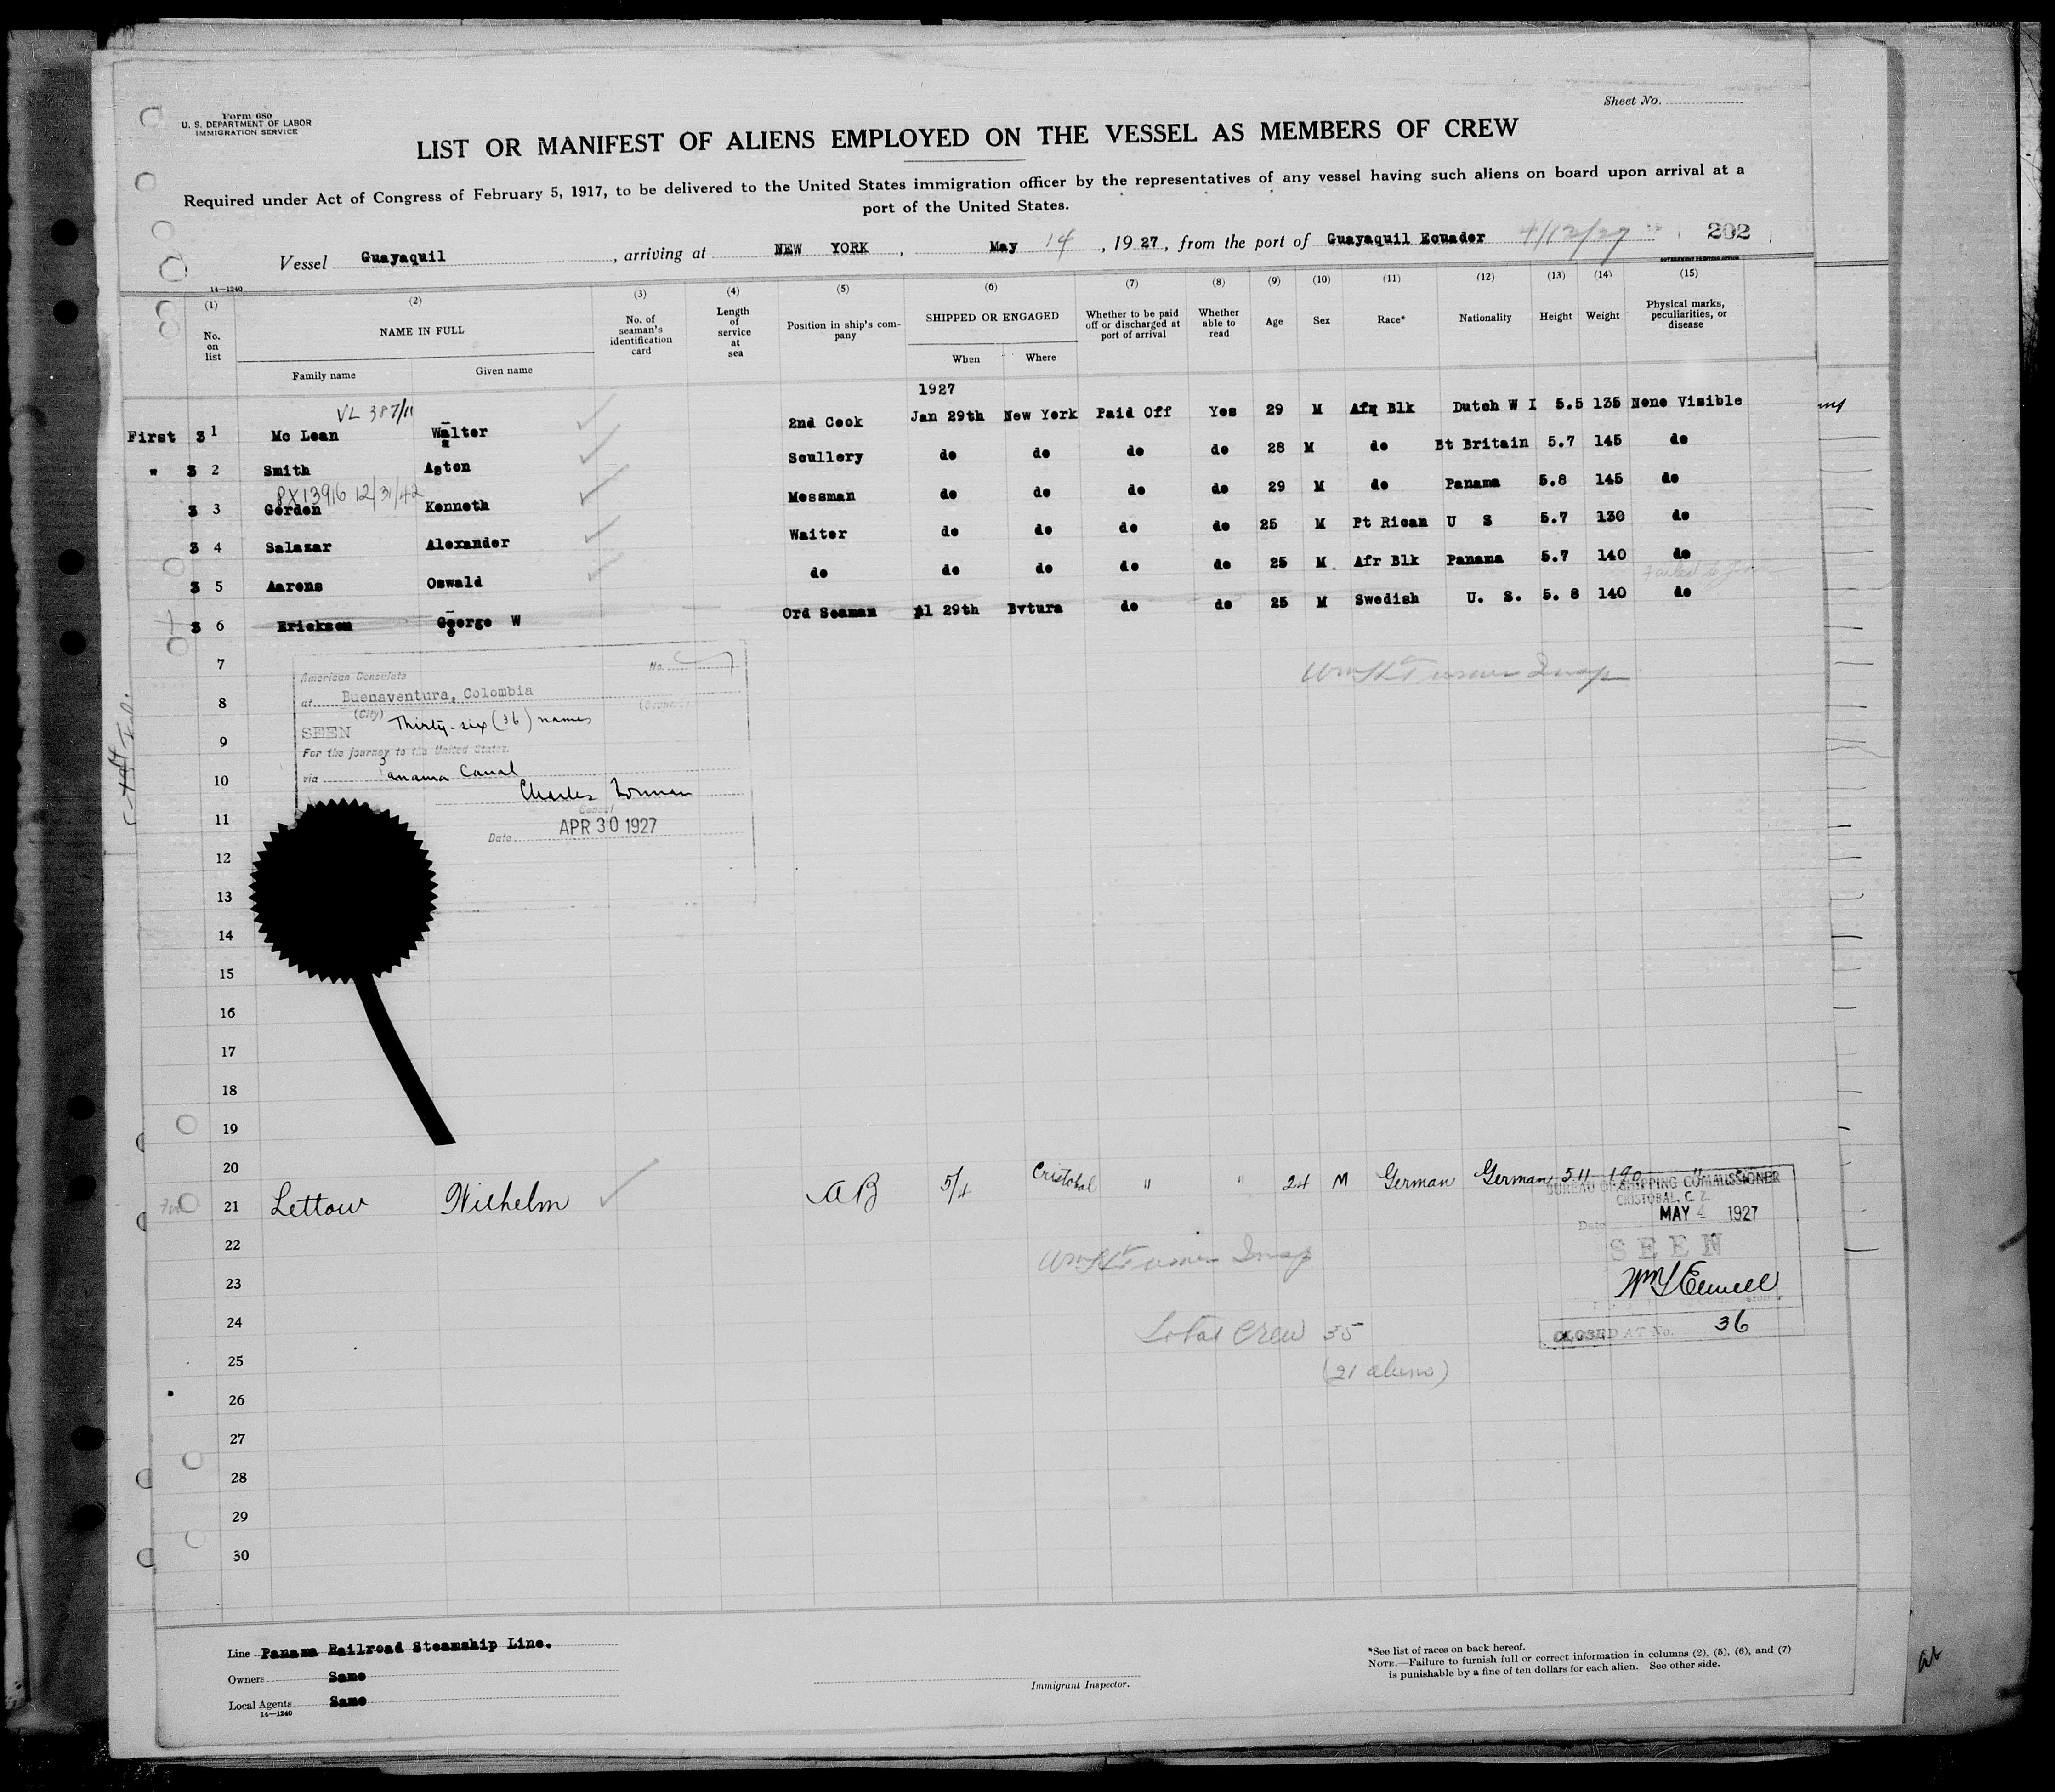 Sheet No.
Form 680
U. S. DEPARTMENT OF LABOR
IMMIGRATION SERVICE
LIST OR MANIFEST OF ALIENS EMPLOYED ON THE VESSEL AS MEMBERS OF CREW
Required under Act of Congress of February 5, 1917, to be delivered to the United States immigration officer by the representatives of any vessel having such aliens on board upon arrival at a
port of the United States.
Vessel Guayaquil, arriving at NEW YORK, May 14, 1927, from the port of Guayaquil Ecuador 4/12/27 202
14—1240
GOVERNMENT PRINTING OFFICE
(1) (2) (3) (4) (5) (6) (7) (8) (9) (10) (11) (12) (13) (14) (15)
No. on list
NAME IN FULL
Family name
Given name
No. of seaman's identification card
Length of service at sea
Position in ship's company
SHIPPED OR ENGAGED
When
Where
Whether to be paid off or discharged at port of arrival
Whether able to read
Age
Sex
Race*
Nationality
Height
Weight
Physical marks, peculiarities, or disease
1927
VL 387/11
First 3 1 Mc Lean Walter 2nd Cook Jan 29th New York Paid Off Yes 29 M Afr Blk Dutch W I 5.5 135 None Visible
" 3 2 Smith Aston Scullery do do do do 28 M do Bt Britain 5.7 145 do
PX13916 12/31/42
3 3 Gordon Kenneth Messman do do do do 29 M do Panama 5.8 145 do
3 4 Salazar Alexander Waiter do do do do 25 M Pt Rican U S 5.7 130 do
3 5 Aarons Oswald do do do do do 25 M. Afr Blk Panama 5.7 140 do
Failed to Join
3 6 Erickson George W Ord Seaman pl 29th Bvtura do do 25 M Swedish U. S. 5. 8 140 do
7
American Consulate
No.
8
at Buenaventura, Colombia
(City) (Country)
9
SEEN Thirty-six (36) names
For the journey to the United States.
10
via Panama Canal
Charles Forman
Consul
11
Date APR 30 1927
12
13
14
15
16
17
18
19
20
21 Lettow Wilhelm AB 5/4 Cristobal " " 24 M German German 5 11 190 "
BUREAU OF SHIPPING COMMISSIONER
CRISTOBAL, C. Z.
Date MAY 4 1927
SEEN
22
23
24
Total Crew 35
CLOSED AT No. 36
25
(21 aliens)
26
27
28
29
30
Line Panama Railroad Steamship Line.
Owners Same
Local Agents Same
14—1240
Immigrant Inspector.
*See list of races on back hereof.
NOTE.—Failure to furnish full or correct information in columns (2), (5), (6), and (7)
is punishable by a fine of ten dollars for each alien. See other side.